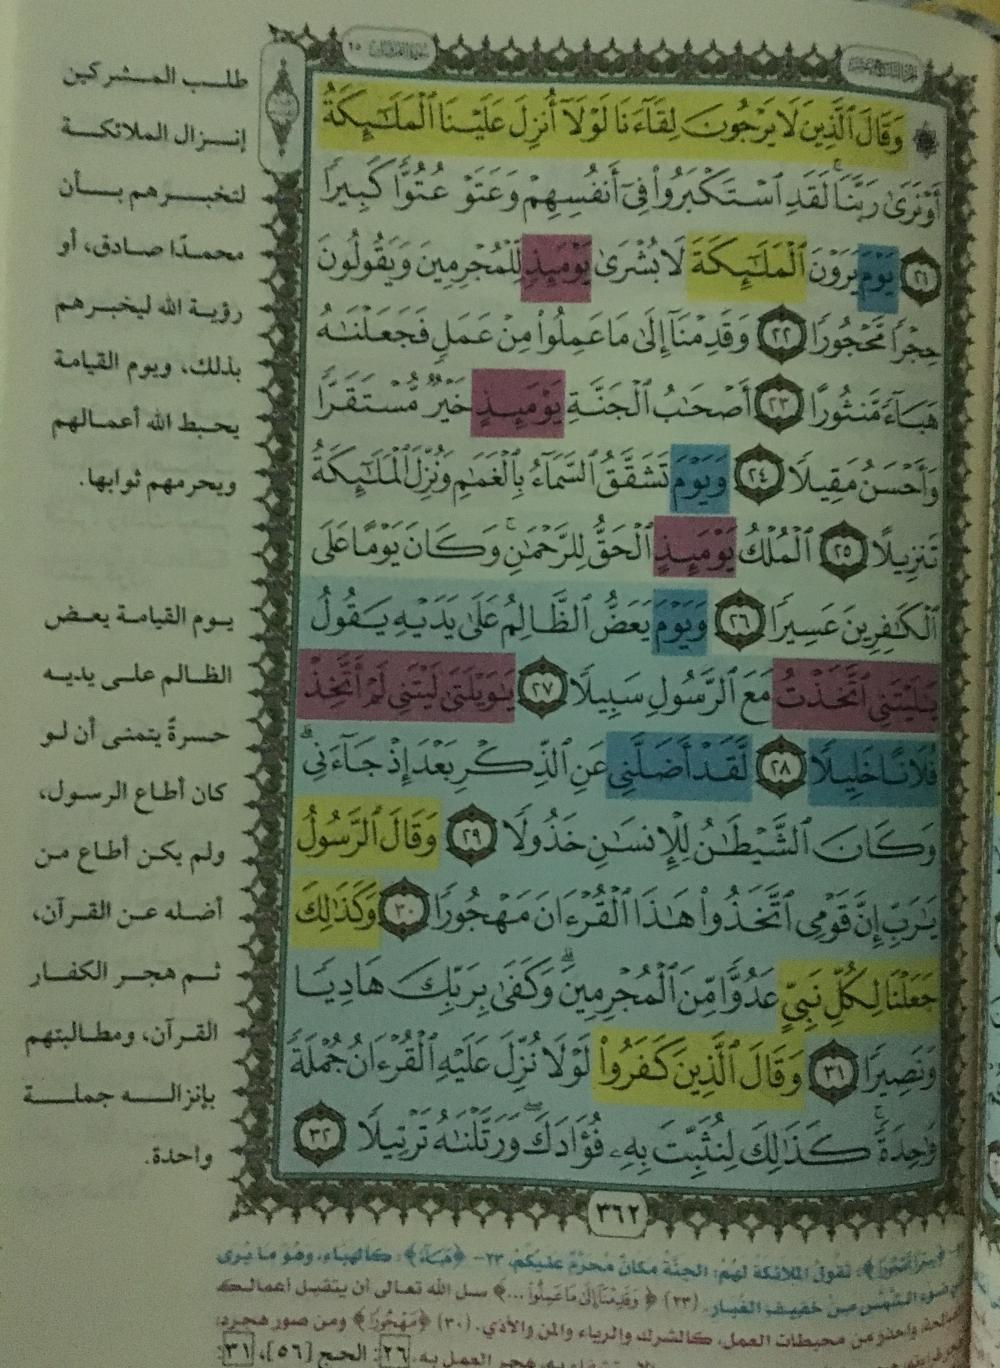 سورة الفرقان ٢٥
وَقَالَ ٱلَّذِينَ لَا يَرْجُونَ لِقَآءَنَا لَوْلَآ أُنزِلَ عَلَيْنَا ٱلْمَلَٰٓئِكَةُ
أَوْ نَرَىٰ رَبَّنَا ۗ لَقَدِ ٱسْتَكْبَرُوا۟ فِىٓ أَنفُسِهِمْ وَعَتَوْ عُتُوًّا كَبِيرًا
٢١ يَوْمَ يَرَوْنَ ٱلْمَلَٰٓئِكَةَ لَا بُشْرَىٰ يَوْمَئِذٍ لِّلْمُجْرِمِينَ وَيَقُولُونَ
حِجْرًا مَّحْجُورًا ٢٢ وَقَدِمْنَآ إِلَىٰ مَا عَمِلُوا۟ مِنْ عَمَلٍ فَجَعَلْنَٰهُ
هَبَآءً مَّنثُورًا ٢٣ أَصْحَٰبُ ٱلْجَنَّةِ يَوْمَئِذٍ خَيْرٌ مُّسْتَقَرًّا
وَأَحْسَنُ مَقِيلًا ٢٤ وَيَوْمَ تَشَقَّقُ ٱلسَّمَآءُ بِٱلْغَمَٰمِ وَنُزِّلَ ٱلْمَلَٰٓئِكَةُ
تَنزِيلًا ٢٥ ٱلْمُلْكُ يَوْمَئِذٍ ٱلْحَقُّ لِلرَّحْمَٰنِ ۚ وَكَانَ يَوْمًا عَلَى
ٱلْكَٰفِرِينَ عَسِيرًا ٢٦ وَيَوْمَ يَعَضُّ ٱلظَّالِمُ عَلَىٰ يَدَيْهِ يَقُولُ
يَٰلَيْتَنِى ٱتَّخَذْتُ مَعَ ٱلرَّسُولِ سَبِيلًا ٢٧ يَٰوَيْلَتَىٰ لَيْتَنِى لَمْ أَتَّخِذْ
فُلَانًا خَلِيلًا ٢٨ لَّقَدْ أَضَلَّنِى عَنِ ٱلذِّكْرِ بَعْدَ إِذْ جَآءَنِى ۗ
وَكَانَ ٱلشَّيْطَٰنُ لِلْإِنسَٰنِ خَذُولًا ٢٩ وَقَالَ ٱلرَّسُولُ
يَٰرَبِّ إِنَّ قَوْمِى ٱتَّخَذُوا۟ هَٰذَا ٱلْقُرْءَانَ مَهْجُورًا ٣٠ وَكَذَٰلِكَ
جَعَلْنَا لِكُلِّ نَبِىٍّ عَدُوًّا مِّنَ ٱلْمُجْرِمِينَ ۗ وَكَفَىٰ بِرَبِّكَ هَادِيًا
وَنَصِيرًا ٣١ وَقَالَ ٱلَّذِينَ كَفَرُوا۟ لَوْلَا نُزِّلَ عَلَيْهِ ٱلْقُرْءَانُ جُمْلَةً
وَٰحِدَةً ۚ كَذَٰلِكَ لِنُثَبِّتَ بِهِۦ فُؤَادَكَ ۖ وَرَتَّلْنَٰهُ تَرْتِيلًا ٣٢
طلب المشركين
إنزال الملائكة
لتخبرهم بأن
محمدًا صادق، أو
رؤية الله ليخبرهم
بذلك، ويوم القيامة
يحبط الله أعمالهم
ويحرمهم ثوابها.
يوم القيامة يعض
الظالم على يديه
حسرةً يتمنى أن لو
كان أطاع الرسول،
ولم يكن أطاع من
أضله عن القرآن،
ثم هجر الكفار
القرآن، ومطالبتهم
بإنزاله جملة
واحدة.
٣٦٢
﴿حِجْرًا مَّحْجُورًا﴾: تقول الملائكة لهم: الجنة مكان محرم عليكم، ٢٣- ﴿هَبَآءً﴾: كالهباء، وهو ما يرى
ضوء الشمس من خفيف الغبار. (٢٣) ﴿وَقَدِمْنَآ إِلَىٰ مَا عَمِلُوا۟ ...﴾ سل الله تعالى أن يتقبل أعمالك
واحذر من محبطات العمل، كالشرك والرياء والمن والأذى. (٣٠) ﴿مَهْجُورًا﴾ ومن صور هجره:
هجر العمل به. ٢٦: الحج [٥٦]، ٣١: